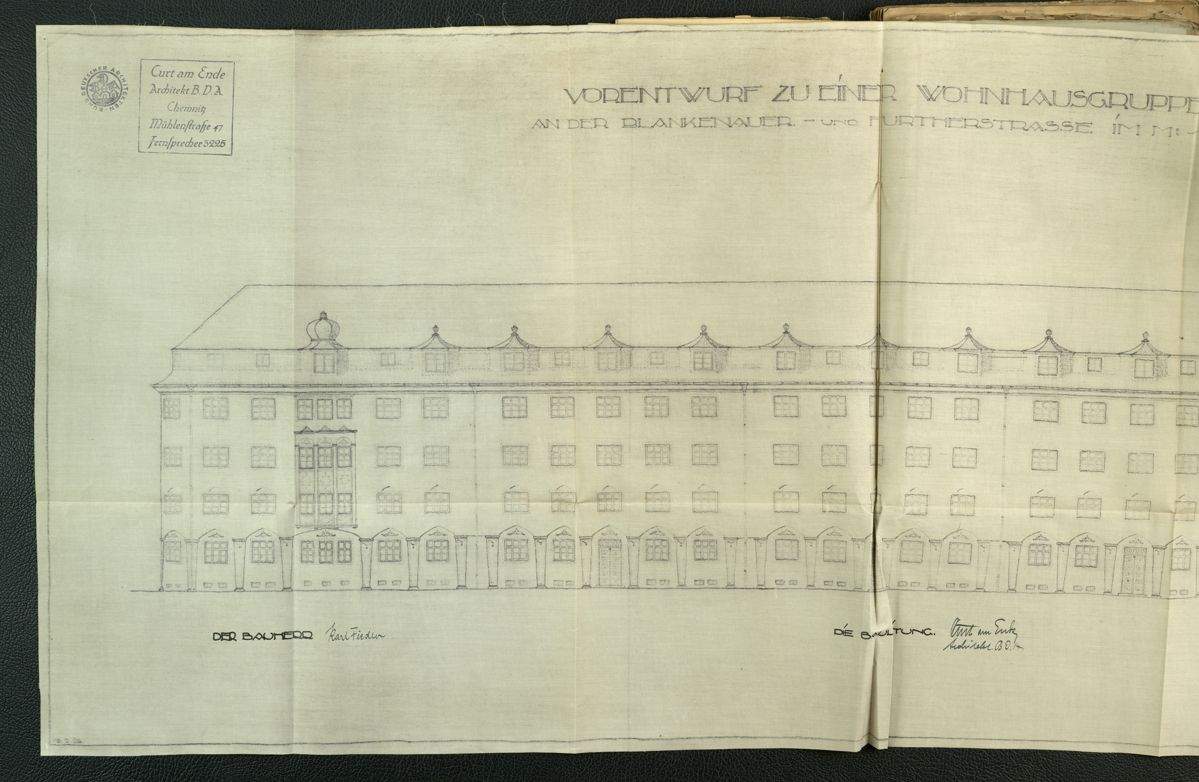 Curt am Ende
Architekt B.D.A.
Chemnitz
Mühlenstraße 47
Fernsprecher 3225
VORENTWURF ZU EINER WOHNHAUSGRUPPE
AN DER BLANKENAUER- UND FURTHERSTRASSE IM M:
DER BAUHERR Karl
DIE BAULTUNG. Curt am Ende
Architekt B.D.A.